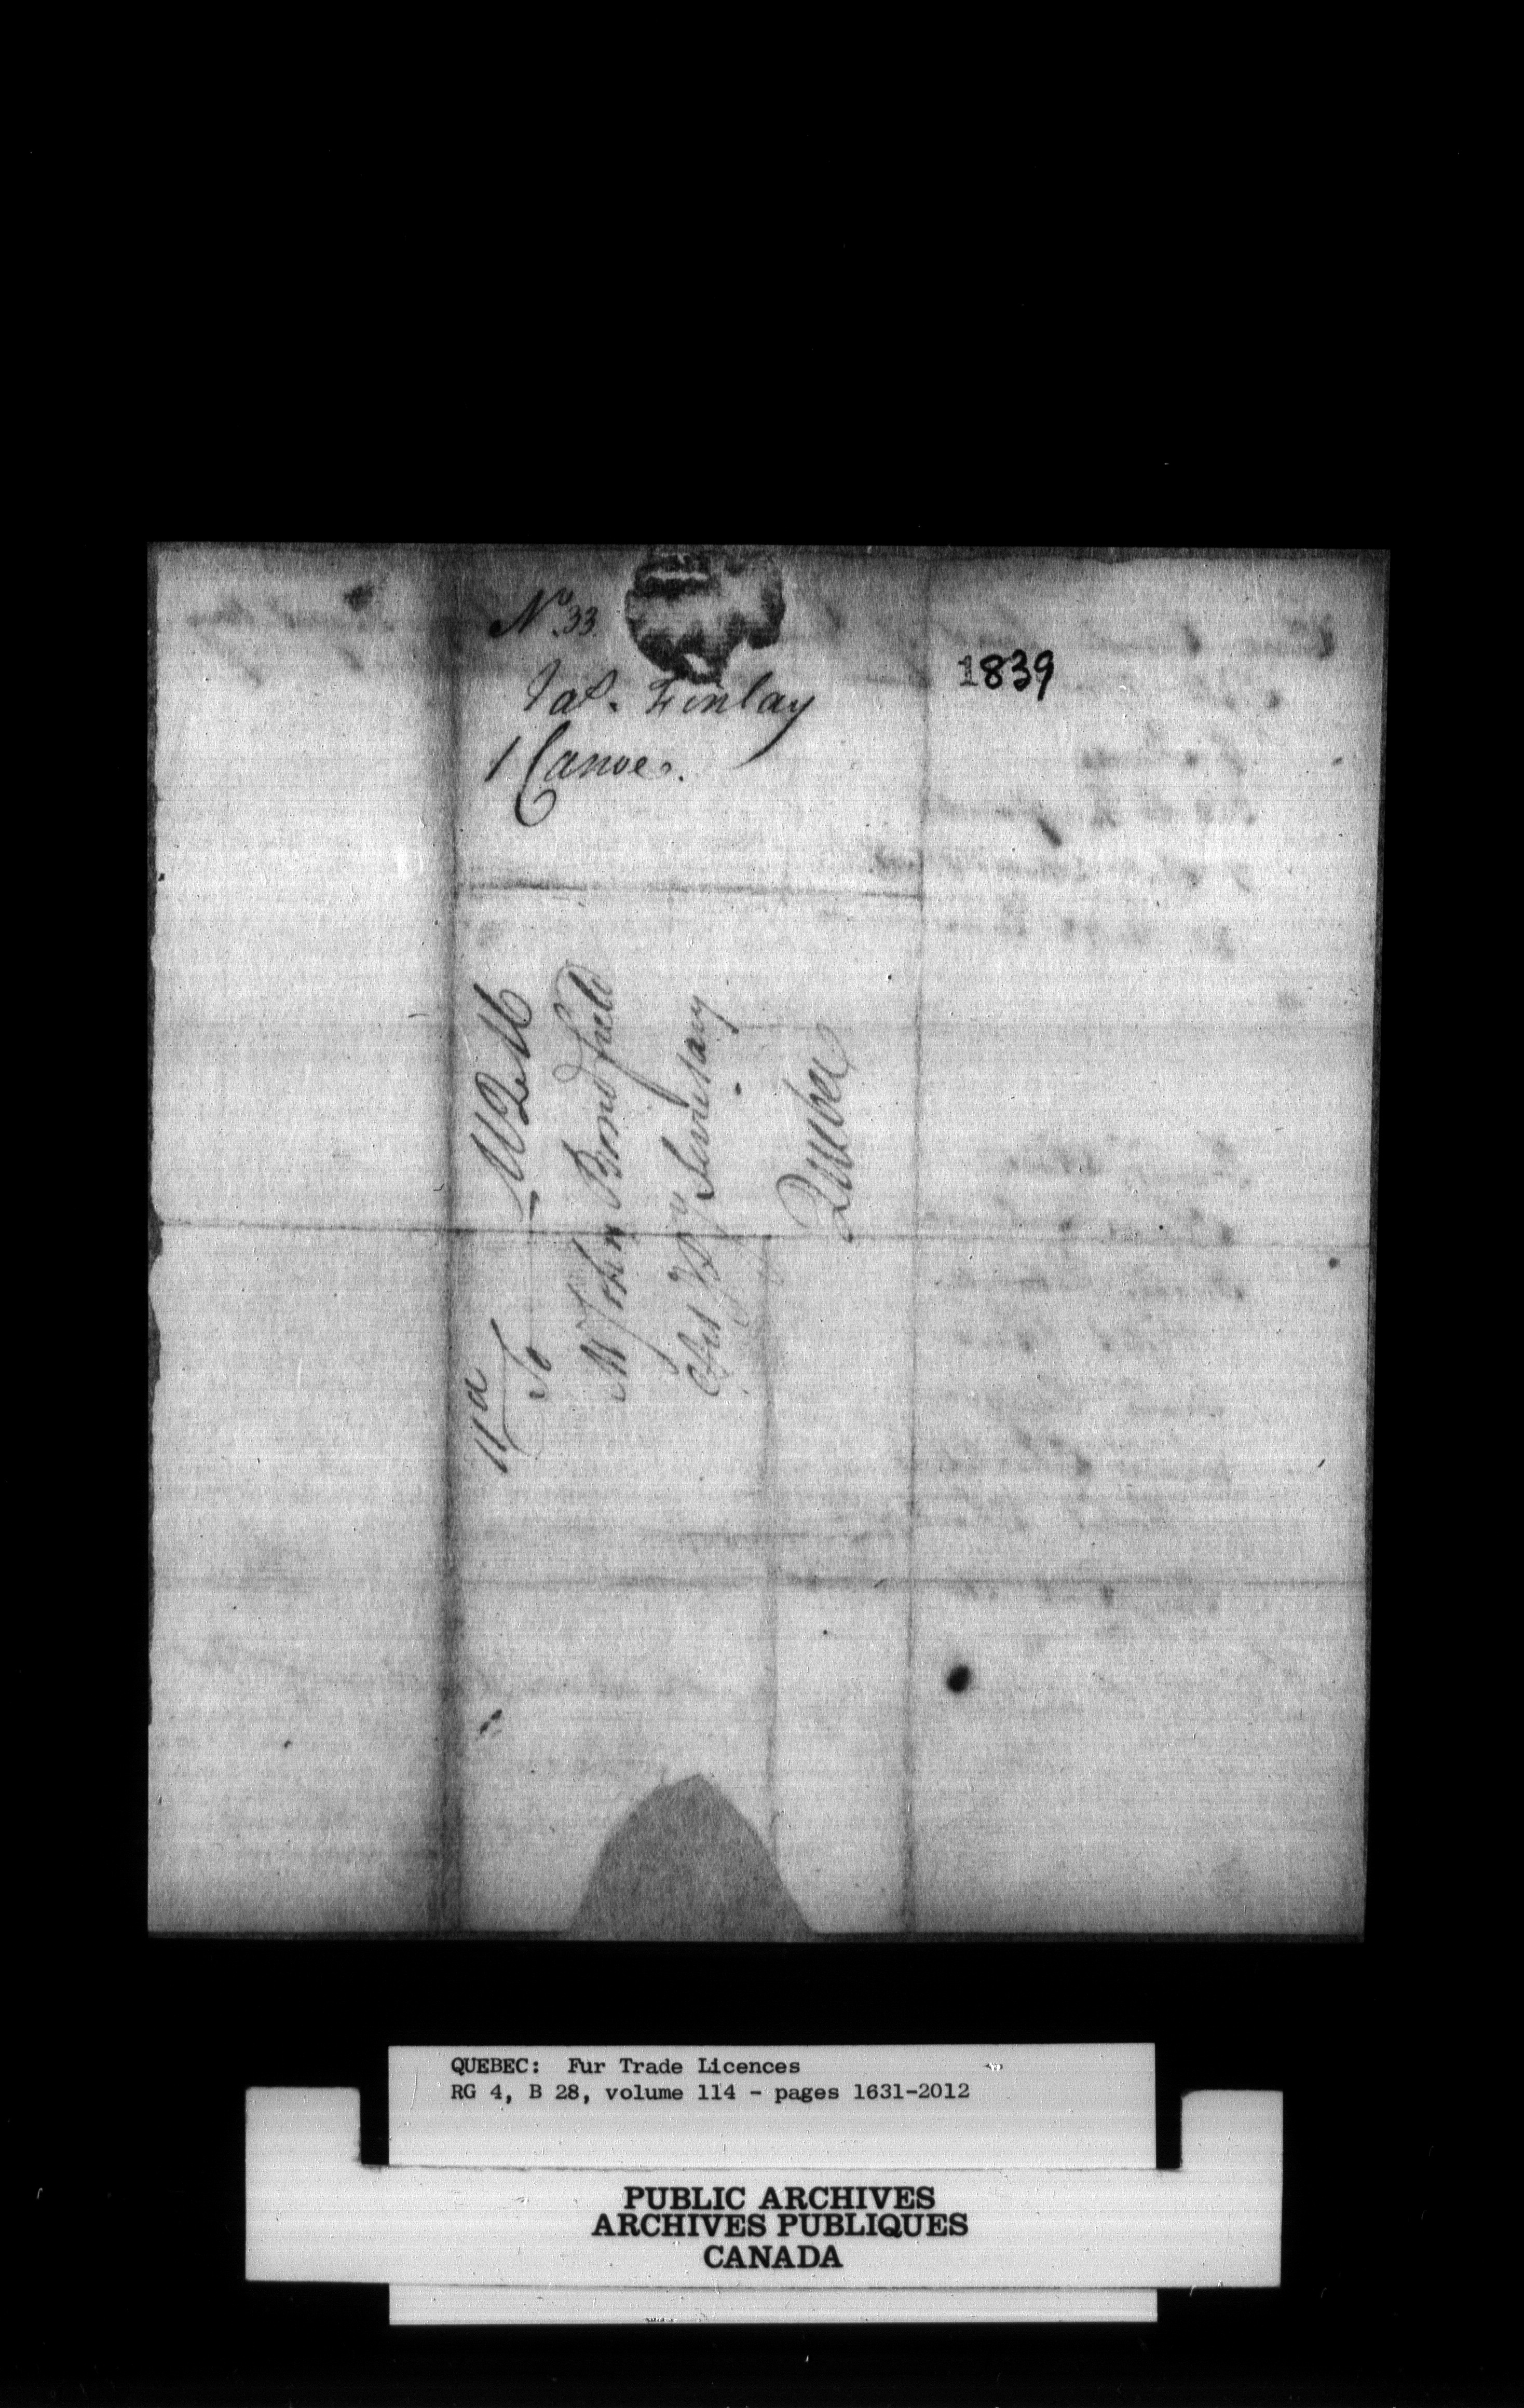 No. 33.
Jas. Finlay
1 Canoe.
1839
11d
To
Mr John Bromfield
Quebec
QUEBEC: Fur Trade Licences
RG 4, B 28, volume 114 - pages 1631-2012
PUBLIC ARCHIVES
ARCHIVES PUBLIQUES
CANADA